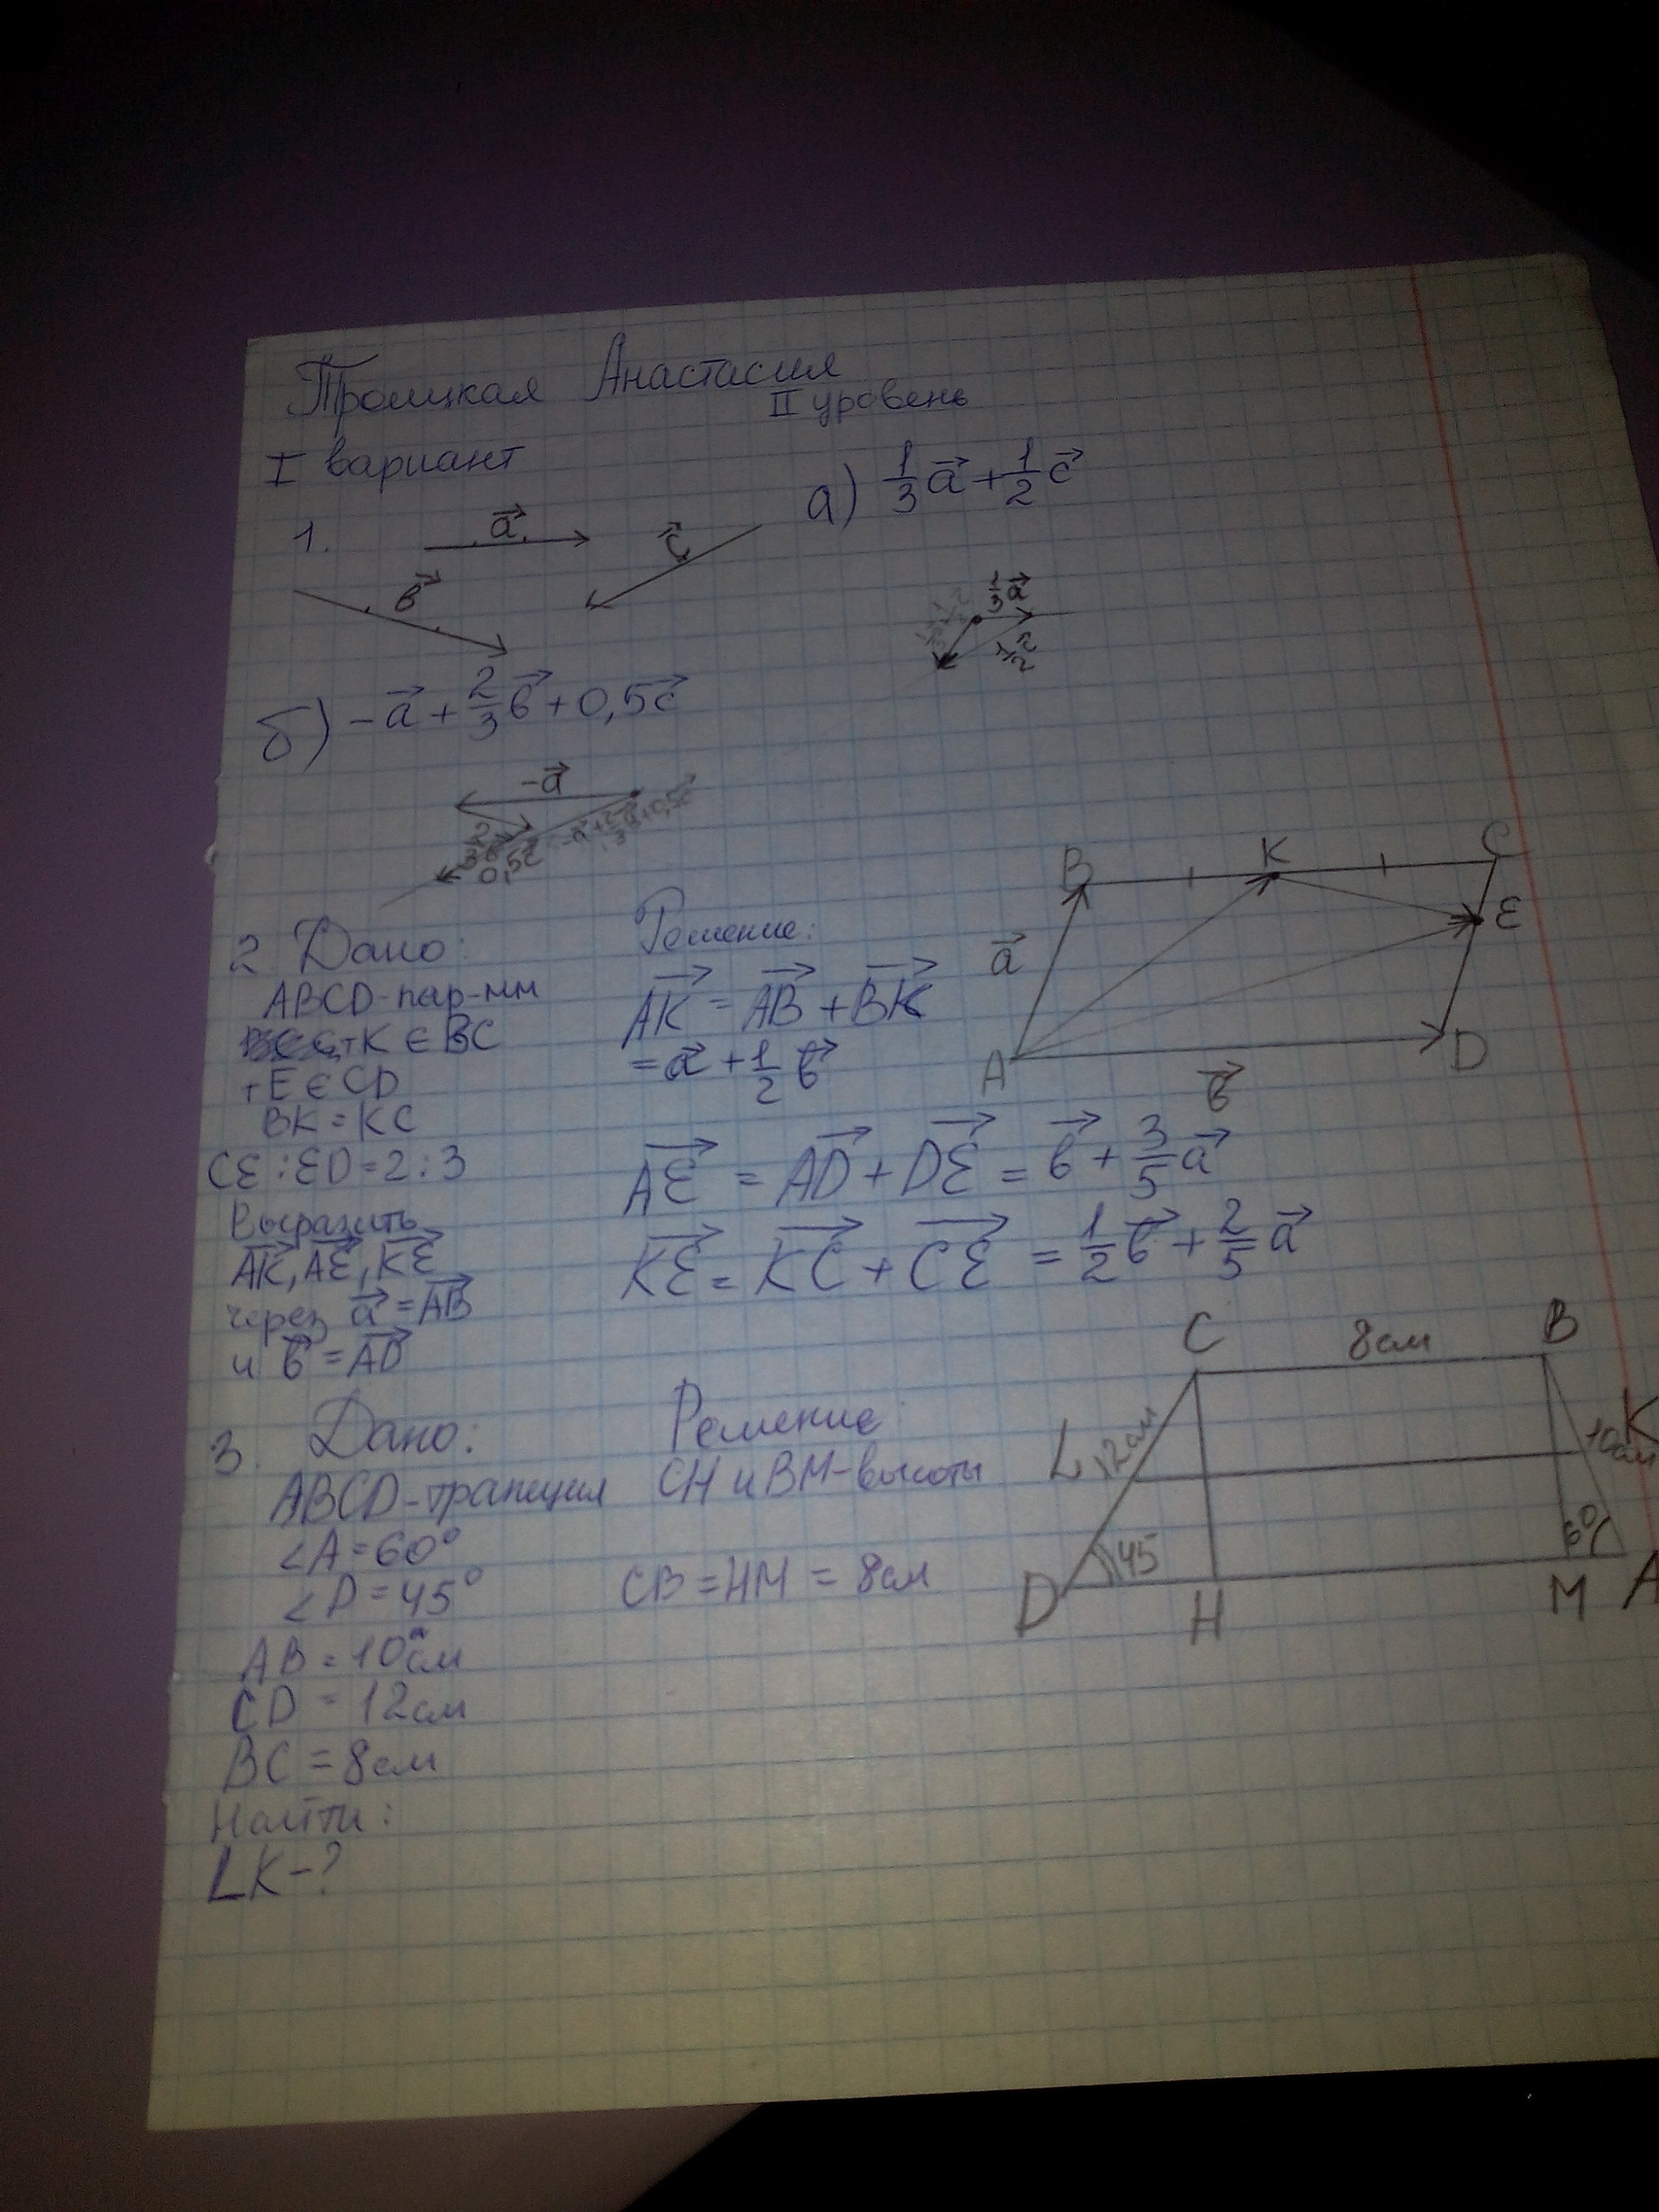 Троицкая Анастасия
II уровень
I вариант
1.
a⃗
b⃗
c⃗
а) 1/3 a⃗ + 1/2 c⃗
1/3 a⃗
1/2 c⃗
б) -a⃗ + 2/3 b⃗ + 0,5c⃗
-a⃗
2/3 b⃗
0,5c⃗
-a⃗ + 2/3 b⃗ + 0,5c⃗
2 Дано:
ABCD-пар-мм
т K ∈ BC
т E ∈ CD
BK = KC
CE : ED = 2 : 3
Выразить
AK⃗, AE⃗, KE⃗
через a⃗ = AB⃗
и b⃗ = AD⃗
Решение:
AK⃗ = AB⃗ + BK⃗
= a⃗ + 1/2 b⃗
AE⃗ = AD⃗ + DE⃗ = b⃗ + 3/5 a⃗
KE⃗ = KC⃗ + CE⃗ = 1/2 b⃗ + 2/5 a⃗
B K C
a⃗ E
A D
b⃗
3. Дано:
ABCD-трапеция
∠A = 60°
∠D = 45°
AB = 10см
CD = 12см
BC = 8см
Найти:
LK-?
Решение
CH и BM-высоты
CB = HM = 8см
C 8см B
L 12см 10см K
45 60
D H M A